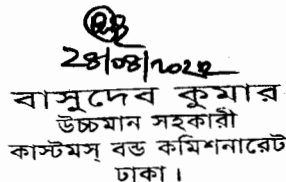 ২৪/০৪/২০২২
বাসুদেব কুমার
উচ্চমান সহকারী
কাস্টমস্ বন্ড কমিশনারেট
ঢাকা।